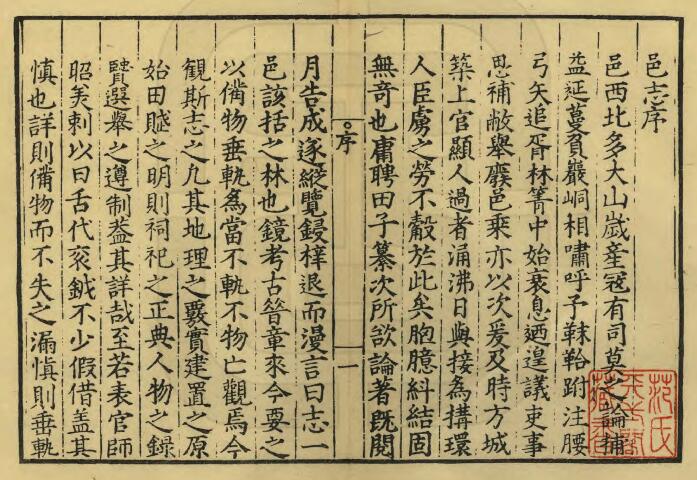 邑志序
邑西北多大山歲產冦有司莫之論輔
益延蔓負巖峒相嘯呼予靺鞈跗注腰
弓矢追胥林箐中始衰息迺遑議吏事
思補敝舉廢邑乗亦以次爰及時方城
築上官顯人過者涌沸日與接為搆環
人臣虜之勞不觳於此矣胞臆紏結固
無奇也庸聘田子纂次所欲論著既閱
序
一
月告成遂縱覽鋟梓退而漫言曰志一
邑該括之林也鏡考古䇿章來今要之
以備物垂軌為當不軌不物亡觀焉今
觀斯志之凡其地理之覈實建置之原
始田賦之明則祠祀之正典人物之録
賢選舉之遵制葢其詳哉至若表官師
昭美刺以曰舌代衮鉞不少假借盖其
慎也詳則備物而不失之漏慎則垂軌
范氏
天一閣
藏書